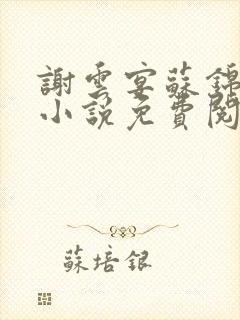 謝雲宴蘇錦
小說免費閱
蘇培銀